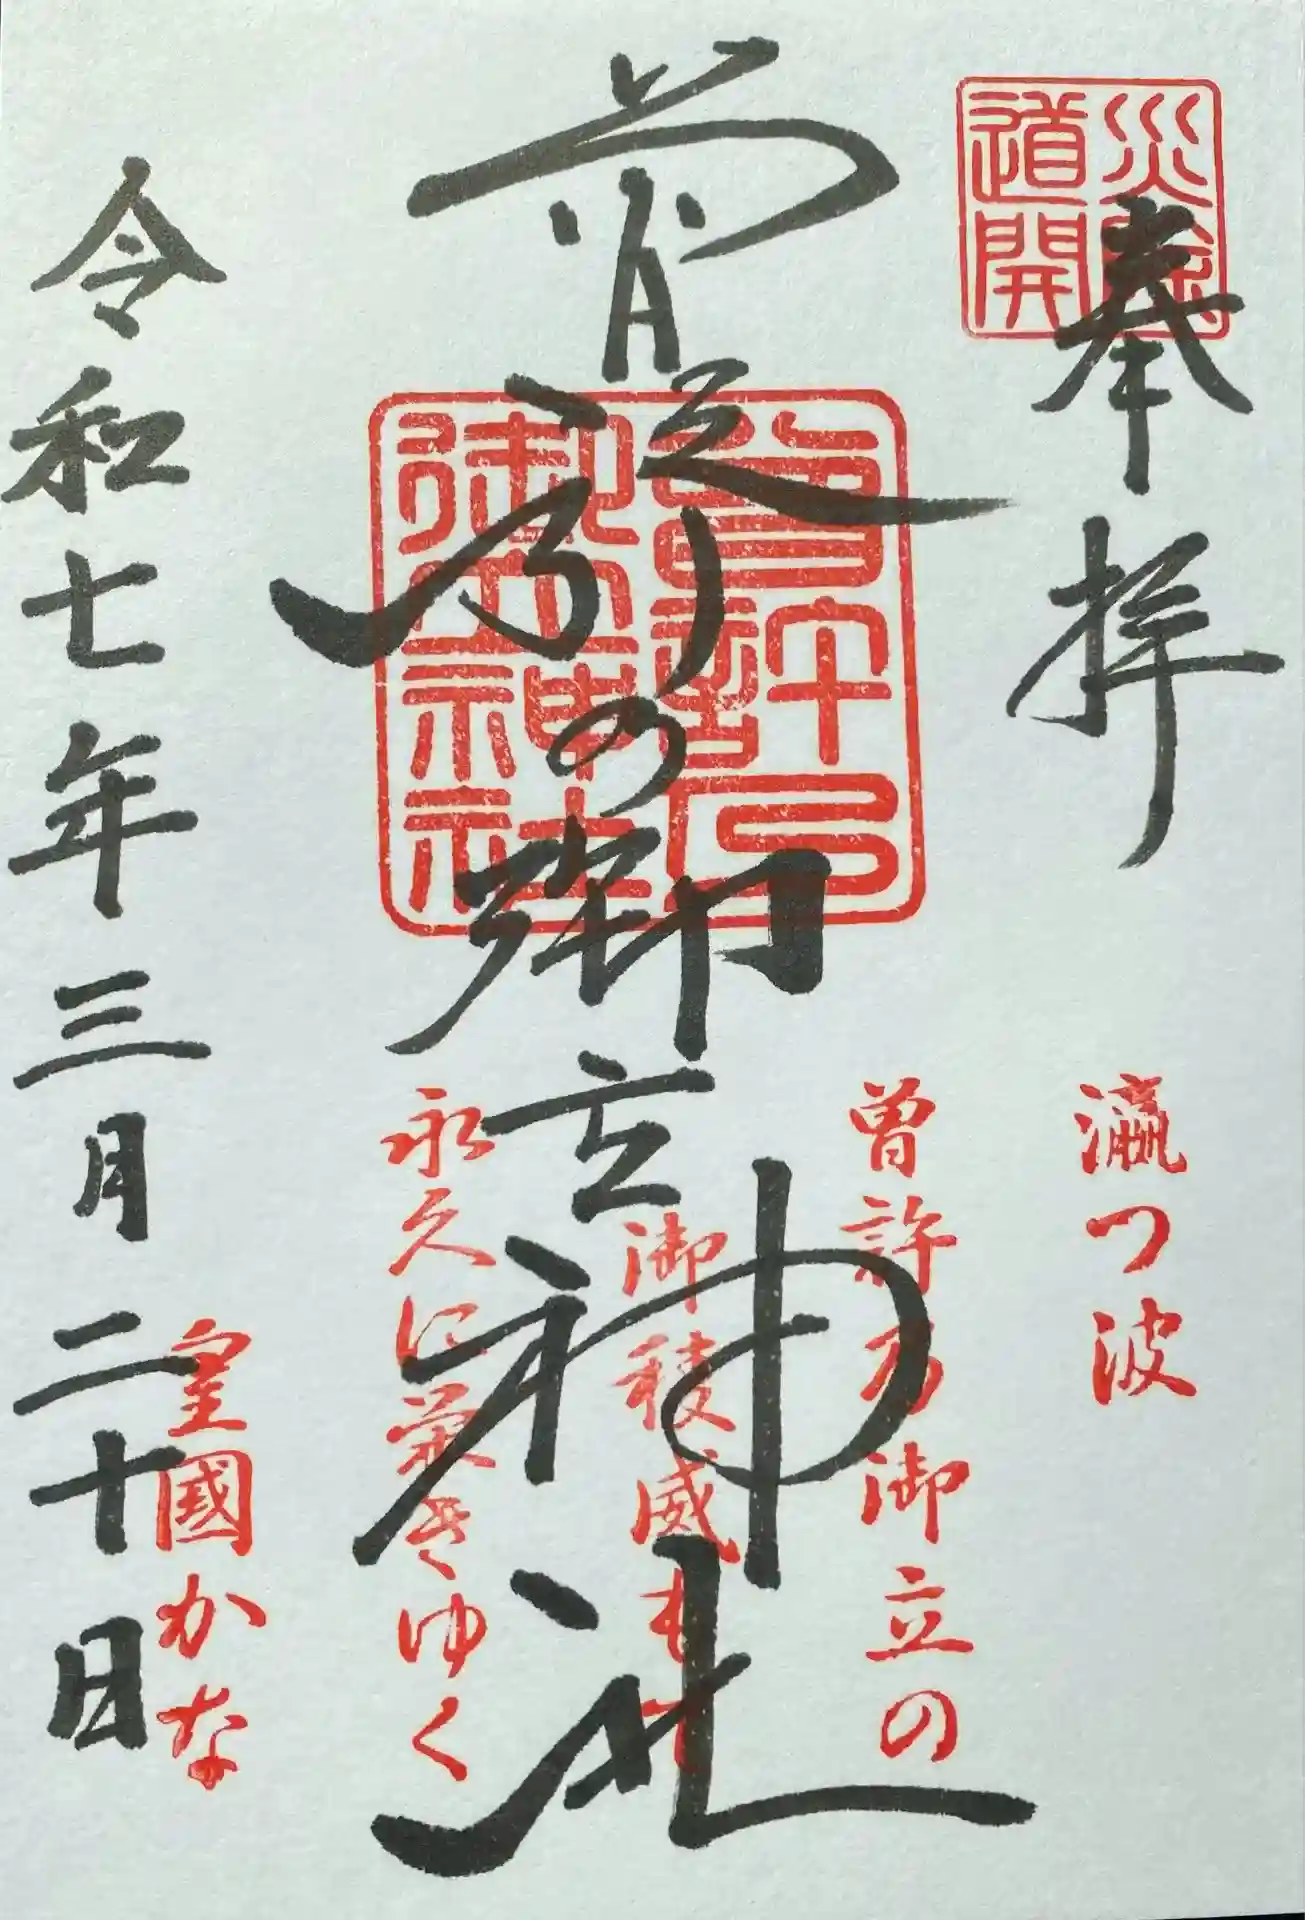 災除
道開
奉拝
曽許乃御立神社
曾許乃
御立神社
瀛つ波
曽許乃御立の
御稜威もて
永久に栄えゆく
皇國かな
令和七年三月二十日